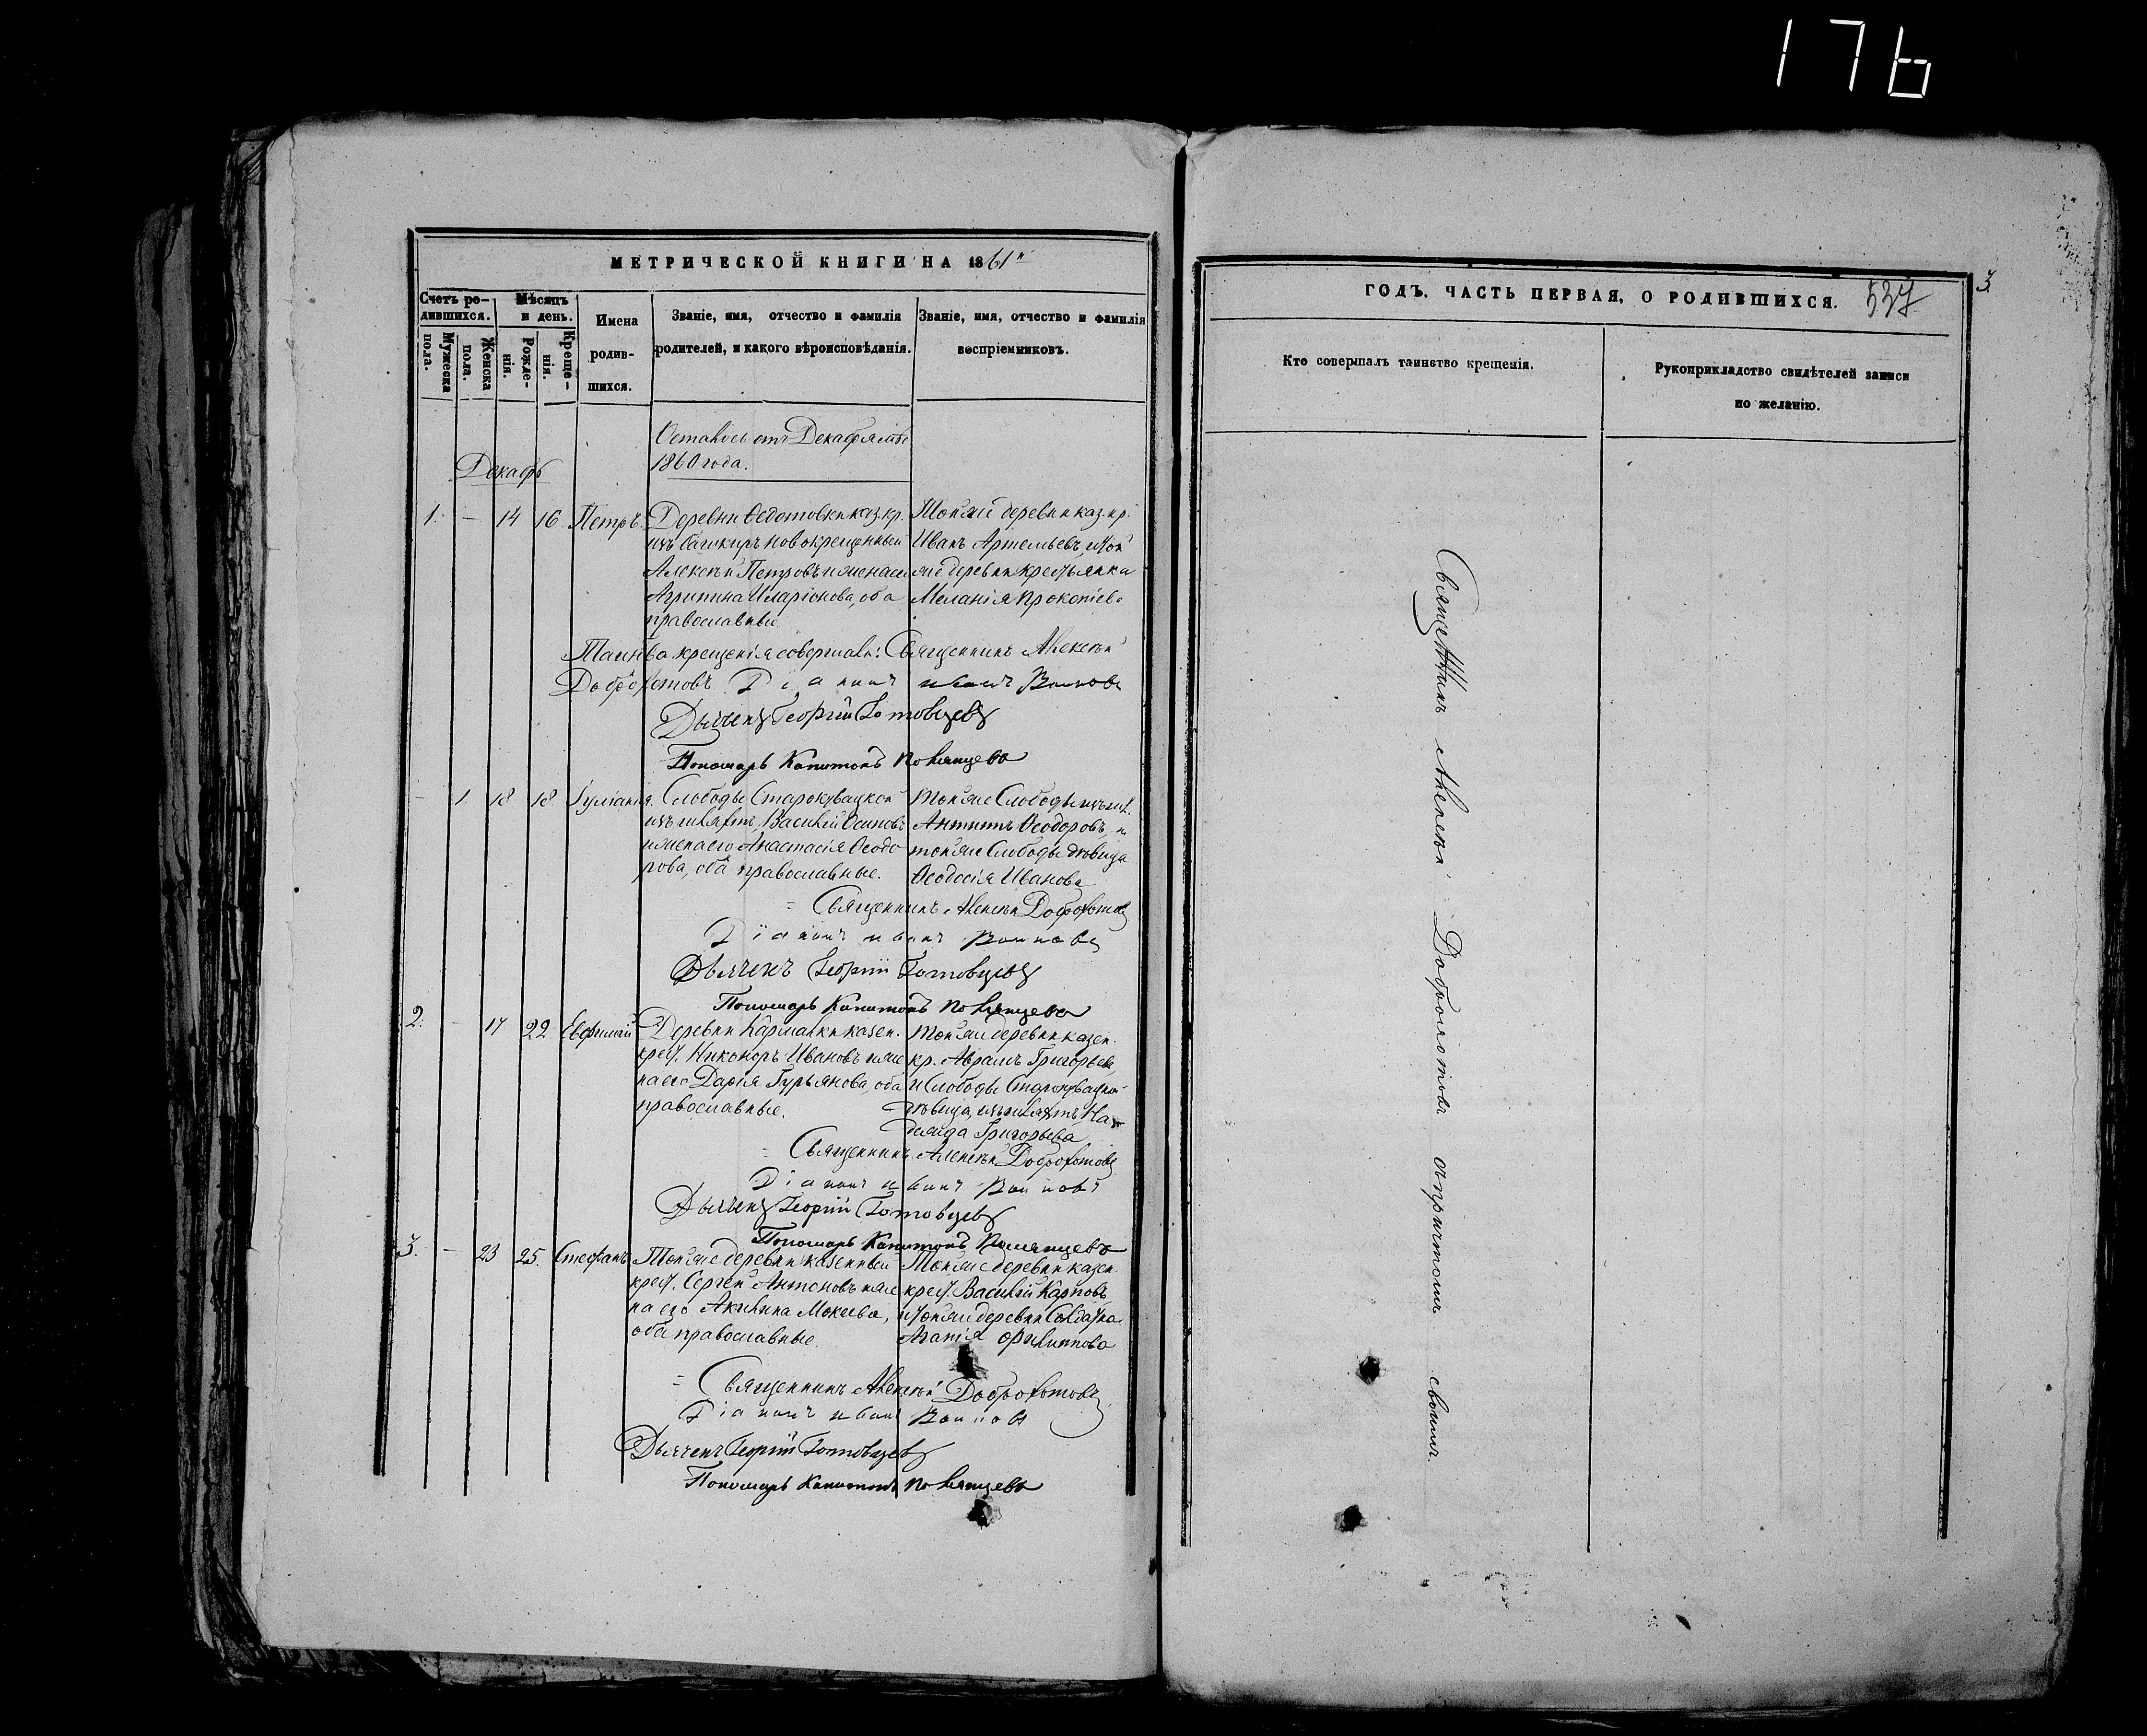 176
МЕТРИЧЕСКОЙ КНИГИ НА 1861й
Счетъ ро-
дившихся.
Мѣсяцъ
и день.
Мужеска
пола.
Женска
пола.
Рожде-
нія.
Креще-
нія.
Имена
родив-
шихся.
Званіе, имя, отчество и фамилія
родителей, и какого вѣроисповѣданія.
Званіе, имя, отчество и фамилія
воспріемниковъ.
отъ Декабря
1860 года.
Декабр
1. - 14 16 Петръ.
Деревни Ѳедотовки каз. кр.
изъ новокрещенный
Алексѣй Петровъ и жена его
Агрипина Иларіонова, оба
православные
Той же деревни каз. кр.
Иванъ Артемьевъ и той
же деревни крестьянка
Меланія Прокопіева
Таинство крещенія совершали: Священникъ Алексѣй
Доброхотовъ Діаконъ Иванъ
Дьячекъ Георгій Готовцевъ
Пономарь Капитонъ
- 1 18 18 Іуліанія.
Слободы Старокувацкой
изъ Василій Осиповъ
и жена его Анастасія Ѳеодо
рова, оба православные.
Той же Слободы изъ
Ѳеодоровъ и
той же Слободы дѣвица
Ѳеодосія Иванова
= Священникъ Алексѣй Доброхотовъ
Діаконъ Иванъ
Дьячекъ Георгій Готовцевъ
Пономарь Капитонъ
2. - 17 22 Евфимій
Деревни Кармалки казен.
крест. Никоноръ Ивановъ и же
на его Дарія Гурьянова, оба
православные.
Той же деревни казен.
кр. Аврамъ Григорьевъ
и Слободы Старокувацкой
дѣвица, изъ На
дежда Григорьева
= Священникъ Алексѣй Доброхотовъ
Діаконъ Иванъ
Дьячекъ Георгій Готовцевъ
Пономарь Капитонъ
3. - 23 25. Стефанъ
Той же деревни казенный
крест. Сергей Антоновъ и же
на его Акилина Мокеева,
оба православные.
Той же деревни казен.
крест. Василій Карповъ
и той же деревни Солдатка
Агапія Филиппова
= Священникъ Алексѣй Доброхотовъ
Діаконъ Иванъ
Дьячекъ Георгій Готовцевъ
Пономарь Капитонъ
ГОДЪ. ЧАСТЬ ПЕРВАЯ, О РОДИВШИХСЯ.
537
3
Кто совершалъ таинство крещенія.
Рукоприкладство свидѣтелей записи
по желанію.
Священникъ Алексѣй Доброхотовъ съ причтомъ своимъ.